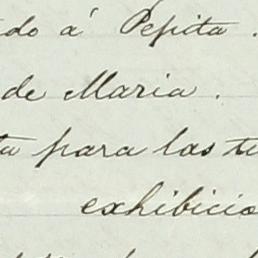 do á Pepita.
de Maria.
ta para las tu
exhibicio